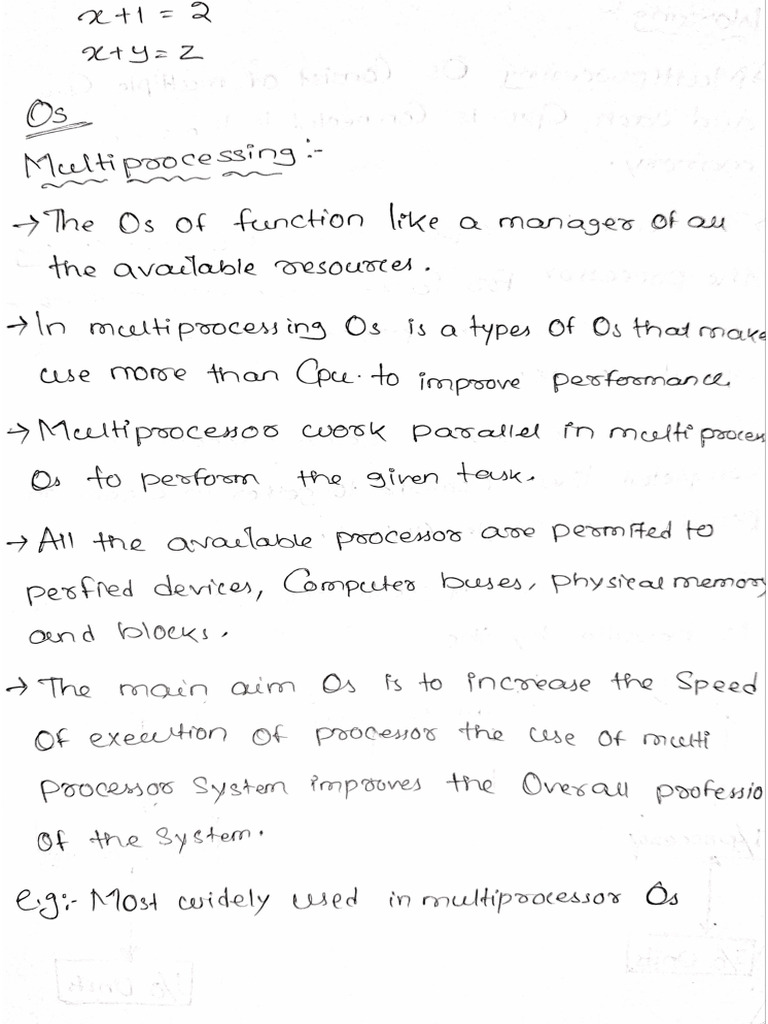 x+1 = 2
x+y = z
Os
Multiprocessing :-
→ The Os of function like a manager of all
the available resources.
→ In multiprocessing Os is a types of Os that make
use more than Cpu. to improve performance.
→ Multiprocessor work parallel in multi proces
Os to perform the given task.
→ All the available processor are permited to
perfied devices, Computer buses, physical memory
and blocks.
→ The main aim Os is to increase the Speed
Of execution Of processor the use of multi
Processor System improves the Overall professio
Of the System.
e.g:- Most widely used in multiprocessor Os